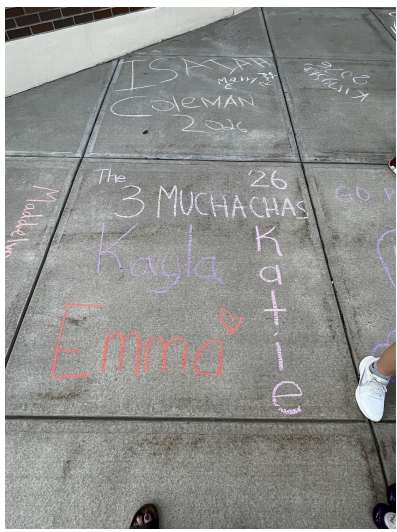 ISAIAH
COLEMAN
2026
The
3 MUCHACHAS
'26
Kayla
Katie
Emma
Maddelyn
GO P
2026